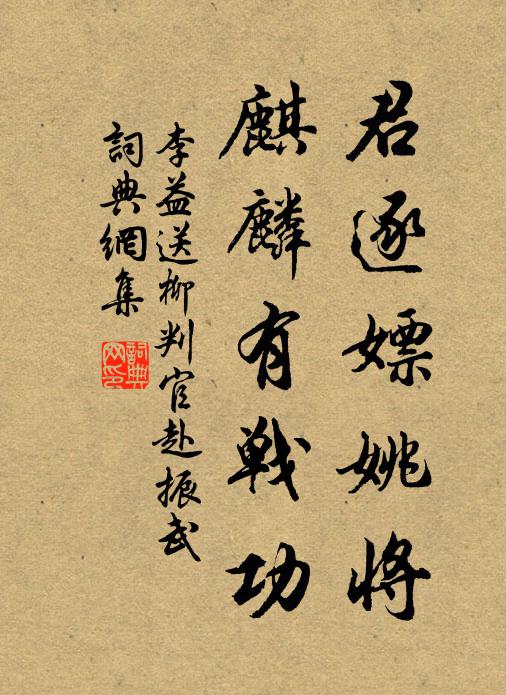 君逐嫖姚將
麒麟有戰功
李益送柳判官赴振武
詞典網集
詞典网印